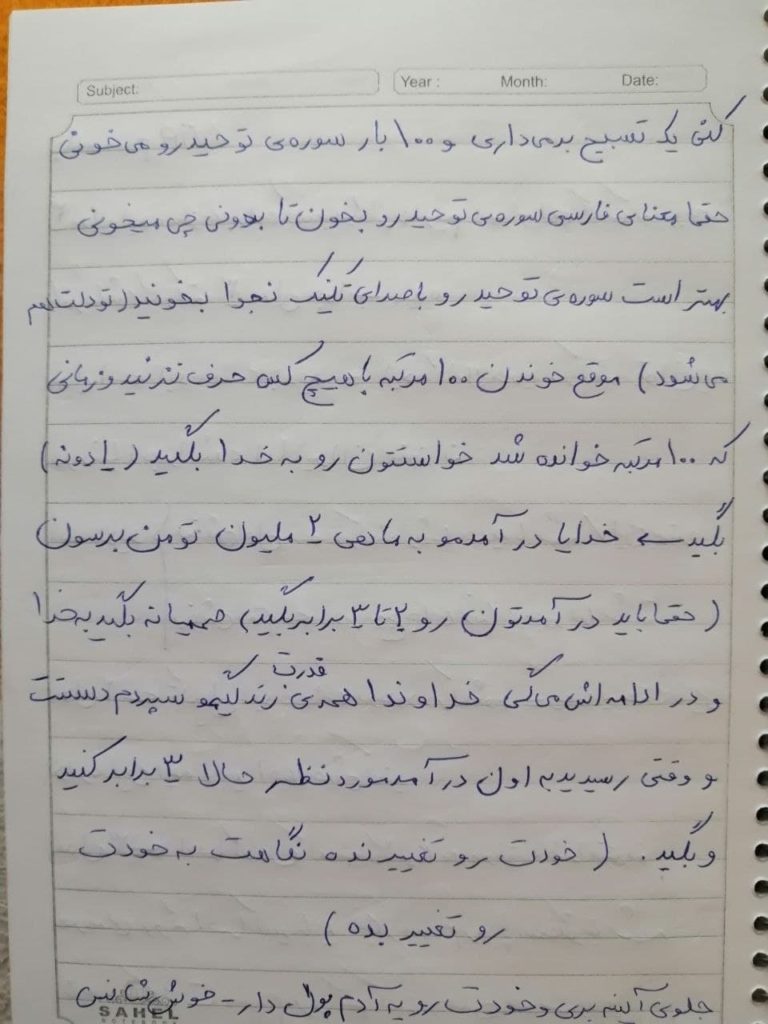 Subject:
Year : Month: Date:
کنی یک تسبیح برمی‌داری و ۱۰۰ بار سوره‌ی توحید رو می‌خونی
حتما معنای فارسی سوره‌ی توحید رو بخون تا بدونی چی میخونی
بهتر است سوره‌ی توحید رو با صدای تکنیک نجوا بخونید (تو دلت هم
می‌شود) موقع خوندن ۱۰۰ مرتبه با هیچ کس حرف نزنید و زمانی
که ۱۰۰ مرتبه خوانده شد خواستتون رو به خدا بگید (یادونه)
بگید خدایا درآمدمو به ماهی ۲ ملیون تومن برسون
(حتما باید درآمدتون رو ۲ تا ۳ برابر بگید) صمیمانه بگید به خدا
و در ادامه‌اش می‌گی خداوندا همه‌ی قدرت زندگیمو سپردم دستت
و وقتی رسیدید به اول درآمد مورد نظر حالا ۳ برابر کنید
و بگید. (خودت رو تغییر نده نگاهت به خودت
رو تغییر بده)
جلوی آینه بری و خودت رو یه آدم پول دار - خوش شانس
SAHEL
NOTEBOOK